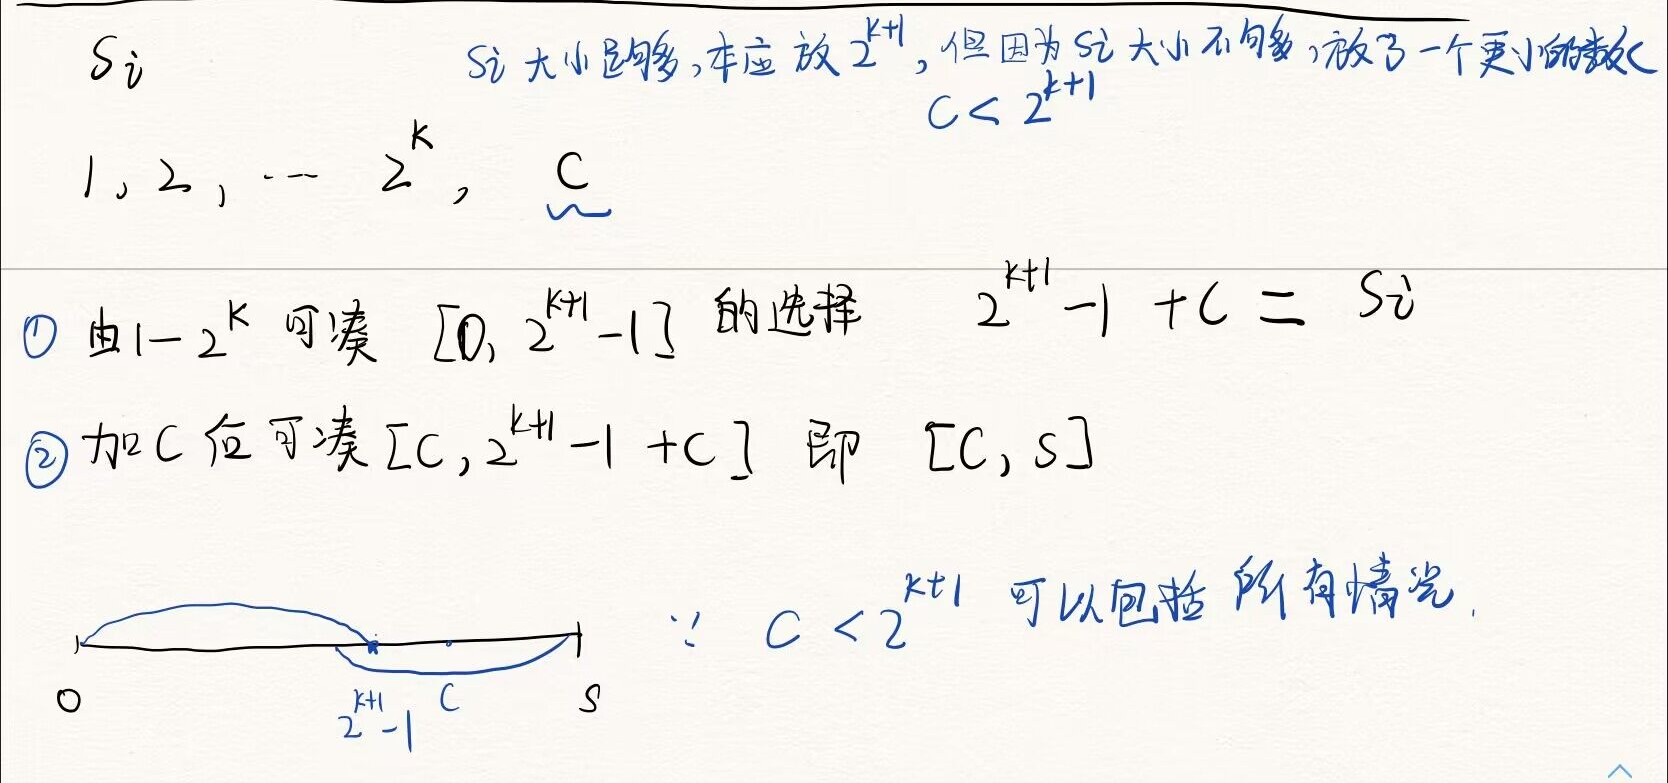 Si
Si 大小足够多，本应放 2^{k+1}，但因为 Si 大小不够多，放了一个更小的数 C
C < 2^{k+1}
1, 2, ... 2^k, C
① 由 1 - 2^k 可凑 [0, 2^{k+1} - 1] 的选择 2^{k+1} - 1 + C = Si
② 加 C 后可凑 [C, 2^{k+1} - 1 + C] 即 [C, S]
∵ C < 2^{k+1} 可以包括所有情况.
0 2^{k+1} - 1 C S